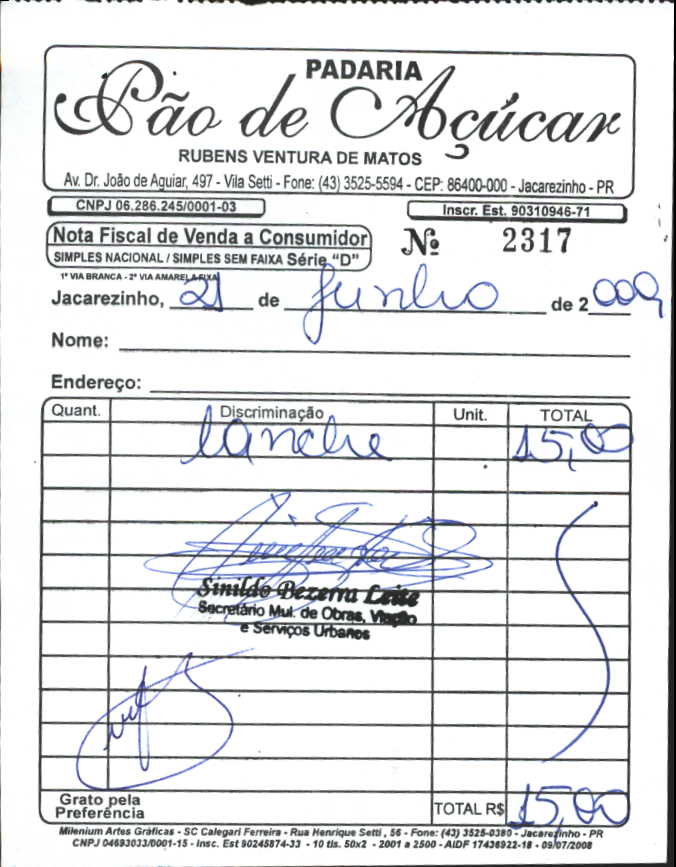 PADARIA
Pão de Açúcar
RUBENS VENTURA DE MATOS
Av. Dr. João de Aguiar, 497 - Vila Setti - Fone: (43) 3525-5594 - CEP: 86400-000 - Jacarezinho - PR
CNPJ 06.286.245/0001-03 Inscr. Est. 90310946-71
Nota Fiscal de Venda a Consumidor Nº 2317
SIMPLES NACIONAL / SIMPLES SEM FAIXA Série "D"
1ª VIA BRANCA - 2ª VIA AMARELA FIXA
Jacarezinho, 21 de Junho de 2009
Nome:
Endereço:
Quant. Discriminação Unit. TOTAL
lanche 15,00
Sinildo Bezerra Leite
Secretário Mul. de Obras, Viação
e Serviços Urbanos
Grato pela
Preferência TOTAL R$ 15,00
Milenium Artes Gráficas - SC Calegari Ferreira - Rua Henrique Setti , 56 - Fone: (43) 3525-0380 - Jacarezinho - PR
CNPJ 04693033/0001-15 - Insc. Est 90245874-33 - 10 tls. 50x2 - 2001 a 2500 - AIDF 17436922-18 - 09/07/2008